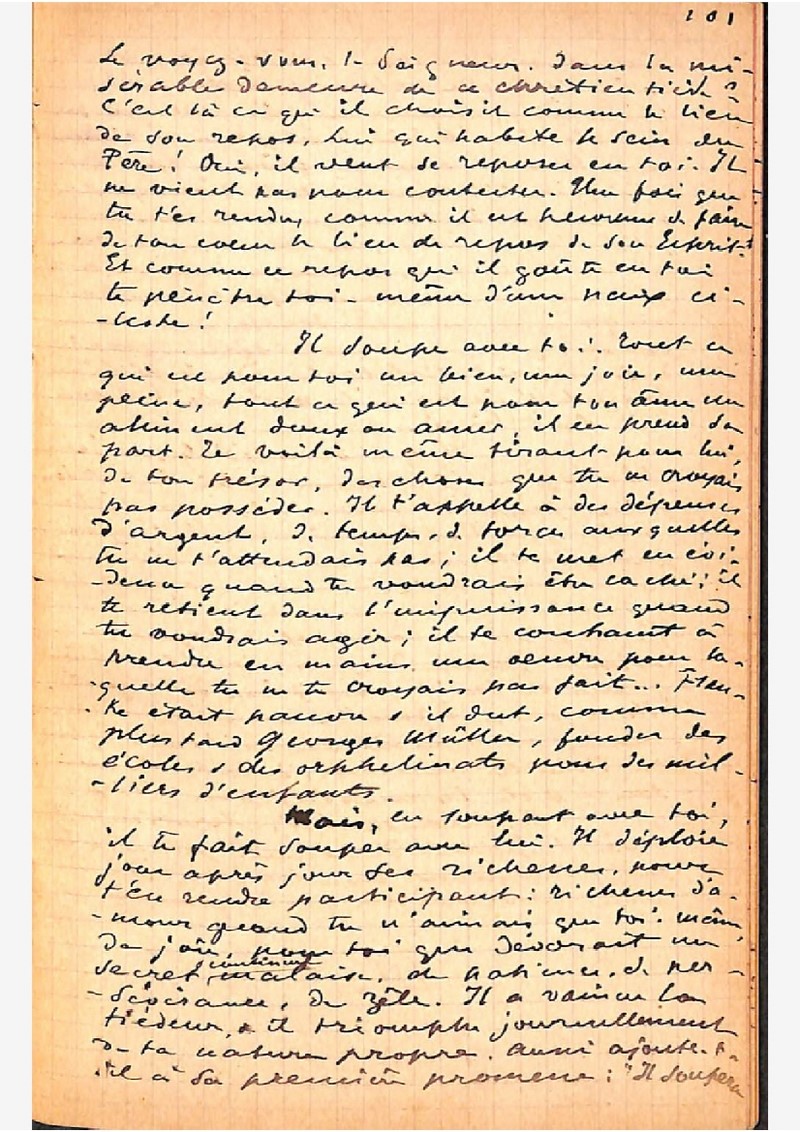 101
Le voyez-vous, le Seigneur, dans la mi-
sérable demeure de ce chrétien tiède ?
C'est là ce qu'il choisit comme le lieu
de son repos, Lui qui habite le sein du
Père ! Oui, il veut se reposer en toi. Il
ne vient pas pour contester. Une fois que
tu t'es rendu, comme il est heureux de faire
de ton coeur le lieu de repos de son Esprit !
Et comme ce repos qu'il goûte en toi
te pénètre toi-même d'une paix cé-
-leste !
Il soupe avec toi. Tout ce
qui est pour toi un bien, une joie, une
peine, tout ce qui est pour ton âme un
aliment doux ou amer, il en prend sa
part. Te voilà même tirant pour lui,
de ton trésor, des choses que tu ne croyais
pas posséder. Il t'appelle à des dépenses
d'argent, de temps, de forces auxquelles
tu ne t'attendais pas ; il te met en évi-
-dence quand tu voudrais être caché ; il
te retient dans l'impuissance quand
tu voudrais agir ; il te contraint à
prendre en mains une oeuvre pour la-
-quelle tu ne te croyais pas fait... Fran-
-ke était pauvre & il dut, comme
plus tard Georges Müller, fonder des
écoles & des orphelinats pour des mil-
-liers d'enfants.
Mais, en soupant avec toi,
il te fait souper avec lui. Il déploie
jour après jour ses richesses, pour
t'en rendre participant : richesses d'a-
-mour quand tu n'aimais que toi-même,
de joie, pour toi que dévorait un
secret & continuel malaise, de patience, de per-
-sévérance, de zèle. Il a vaincu la
tiédeur, & il triomphe journellement
de ta nature propre. Aussi ajoute-t-
-il à sa première promesse : "Il soupera